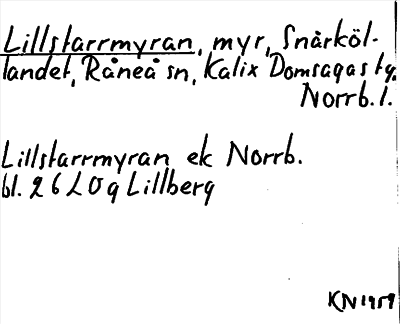 Lillstarrmyran, myr, Snårköl-
landet, Råneå sn, Kalix Domsagas tg,
Norrb. l.
Lillstarrmyran ek Norrb.
bl. 26 L 0 g Lillberg
KN 1959